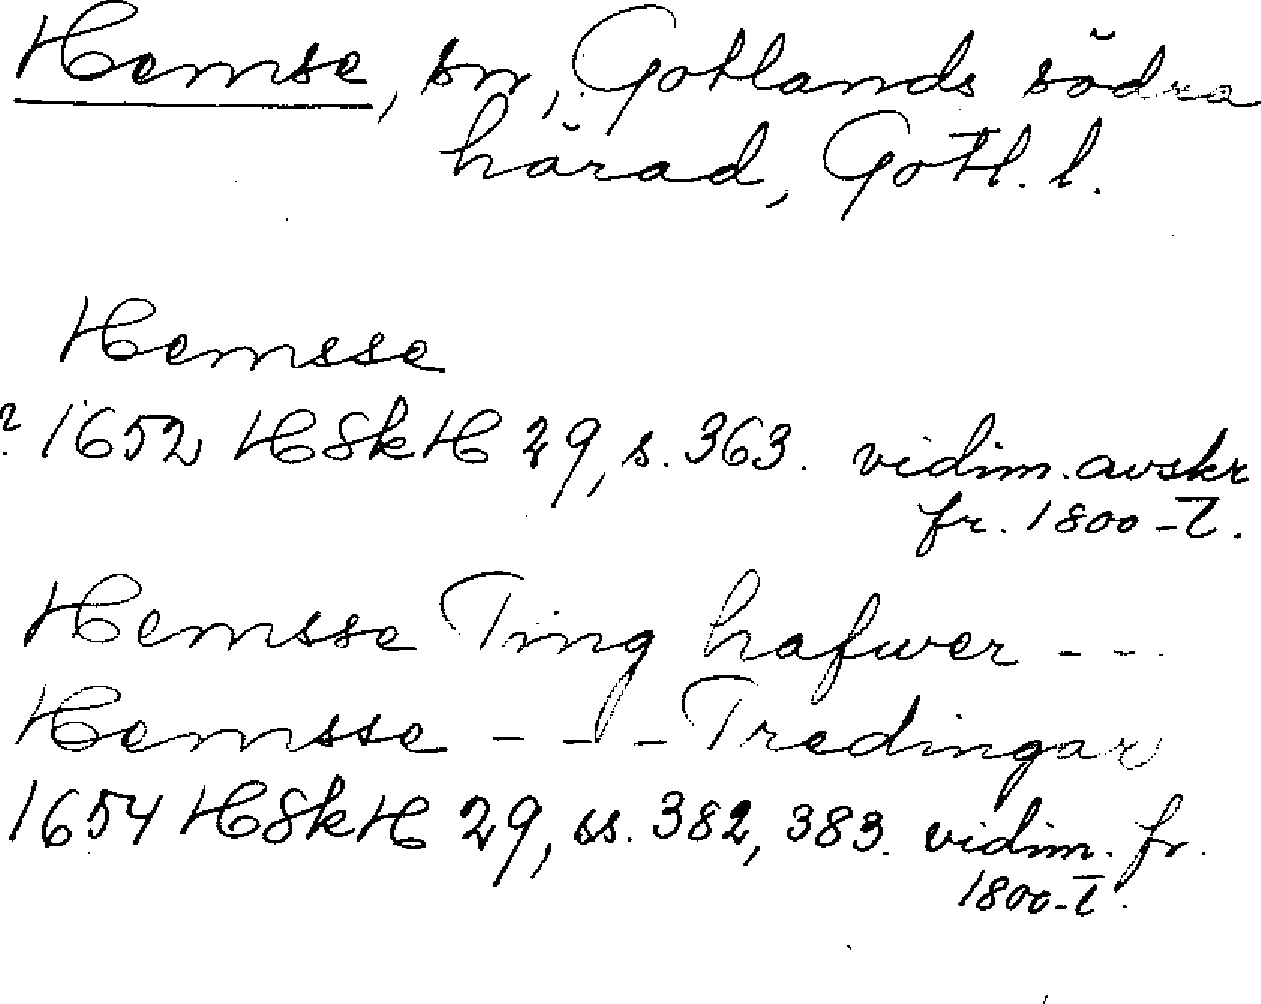 Hemse, sn, Gotlands södra
härad, Gotl. l.
Hemsse
? 1652 HSkH 29, s. 363. vidim. avskr
fr. 1800-t.
Hemsse Ting hafwer - - -
Hemsse - - - Tredingar
1654 HSkH 29, ss. 382, 383. vidim. fr.
1800-t.